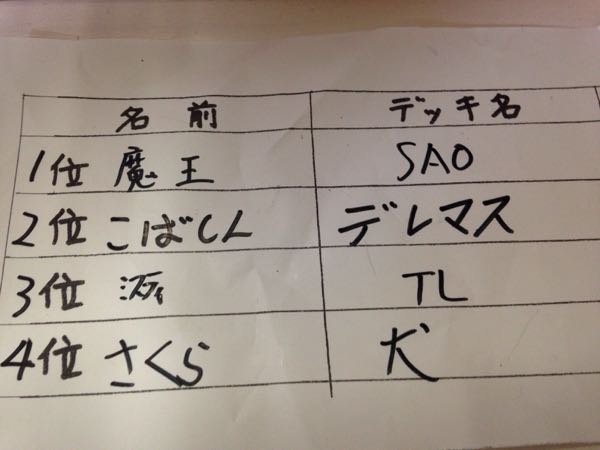 名前 デッキ名
1位 魔王 SAO
2位 こばしん デレマス
3位 ミスティ TL
4位 さくら 犬